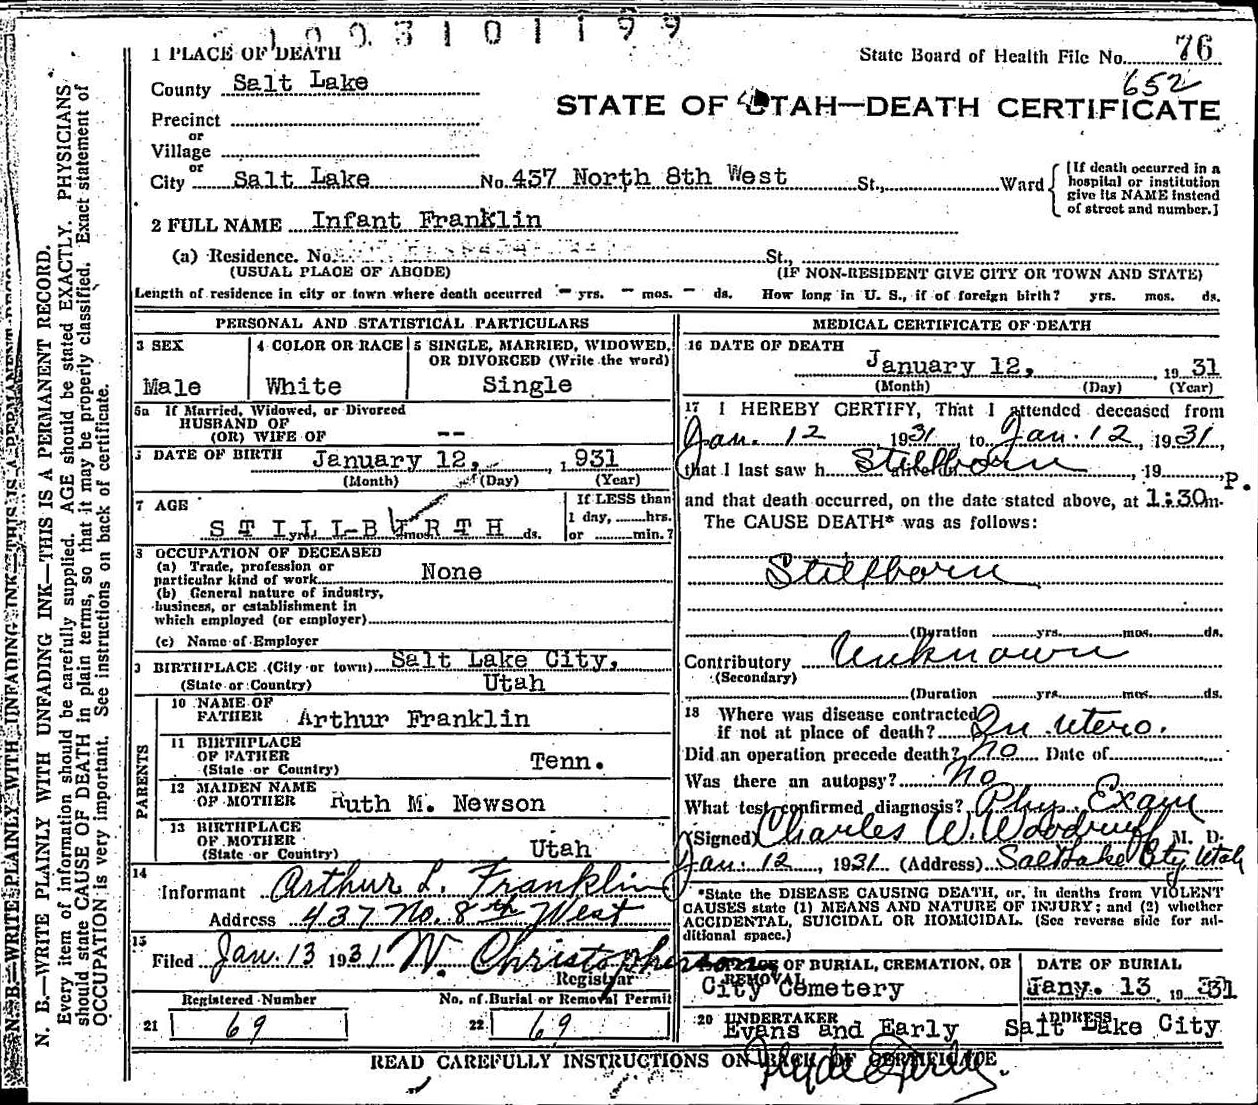 1003101199
1 PLACE OF DEATH
State Board of Health File No. 76
652
County Salt Lake
STATE OF UTAH—DEATH CERTIFICATE
Precinct
or
Village
or
City Salt Lake No. 437 North 8th West St., Ward
[If death occurred in a hospital or institution give its NAME instead of street and number.]
2 FULL NAME Infant Franklin
(a) Residence. No. St.,
(USUAL PLACE OF ABODE) (IF NON-RESIDENT GIVE CITY OR TOWN AND STATE)
Length of residence in city or town where death occurred - yrs. - mos. - ds. How long in U. S., if of foreign birth? yrs. mos. ds.
PERSONAL AND STATISTICAL PARTICULARS
3 SEX 4 COLOR OR RACE 5 SINGLE, MARRIED, WIDOWED, OR DIVORCED (Write the word)
Male White Single
5a If Married, Widowed, or Divorced
HUSBAND OF
(OR) WIFE OF --
DATE OF BIRTH January 12, 1931
(Month) (Day) (Year)
7 AGE
If LESS than
1 day, hrs.
or min.?
STILL-BIRTH yrs. mos. ds.
8 OCCUPATION OF DECEASED
(a) Trade, profession or
particular kind of work None
(b) General nature of industry,
business, or establishment in
which employed (or employer)
(c) Name of Employer
9 BIRTHPLACE (City or town) Salt Lake City,
(State or Country) Utah
PARENTS
10 NAME OF
FATHER Arthur Franklin
11 BIRTHPLACE
OF FATHER
(State or Country) Tenn.
12 MAIDEN NAME
OF MOTHER Ruth M. Newson
13 BIRTHPLACE
OF MOTHER
(State or Country) Utah
14
Informant Arthur L. Franklin
Address 437 No. 8th West
15
Filed Jan. 13 1931 W. Christopherson
Registrar
Registered Number No. of Burial or Removal Permit
21 69 22 69
MEDICAL CERTIFICATE OF DEATH
16 DATE OF DEATH
January 12, 1931
(Month) (Day) (Year)
17 I HEREBY CERTIFY, That I attended deceased from
Jan. 12, 1931, to Jan. 12, 1931,
that I last saw h Stillborn, 19
and that death occurred, on the date stated above, at 1:30 P. m.
The CAUSE DEATH* was as follows:
Stillborn
(Duration yrs. mos. ds.
Contributory Unknown
(Secondary)
(Duration yrs. mos. ds.
18 Where was disease contracted
if not at place of death? In utero.
Did an operation precede death? no Date of
Was there an autopsy? No
What test confirmed diagnosis? Phys. Exam
(Signed) Charles W. Woodruff M. D.
Jan. 12, 1931 (Address) Salt Lake City Utah
*State the DISEASE CAUSING DEATH, or, in deaths from VIOLENT
CAUSES state (1) MEANS AND NATURE OF INJURY; and (2) whether
ACCIDENTAL, SUICIDAL OR HOMICIDAL. (See reverse side for ad-
ditional space.)
OF BURIAL, CREMATION, OR REMOVAL DATE OF BURIAL
City Cemetery Jany. 13 1931
20 UNDERTAKER ADDRESS
Evans and Early Salt Lake City
READ CAREFULLY INSTRUCTIONS ON BACK OF CERTIFICATE
N. B.—WRITE PLAINLY WITH UNFADING INK—THIS IS A PERMANENT RECORD.
Every item of information should be carefully supplied. AGE should be stated EXACTLY. PHYSICIANS
should state CAUSE OF DEATH in plain terms, so that it may be properly classified. Exact statement of
OCCUPATION is very important. See instructions on back of certificate.
N. B.—WRITE PLAINLY WITH UNFADING INK—THIS IS A PERMANENT RECORD